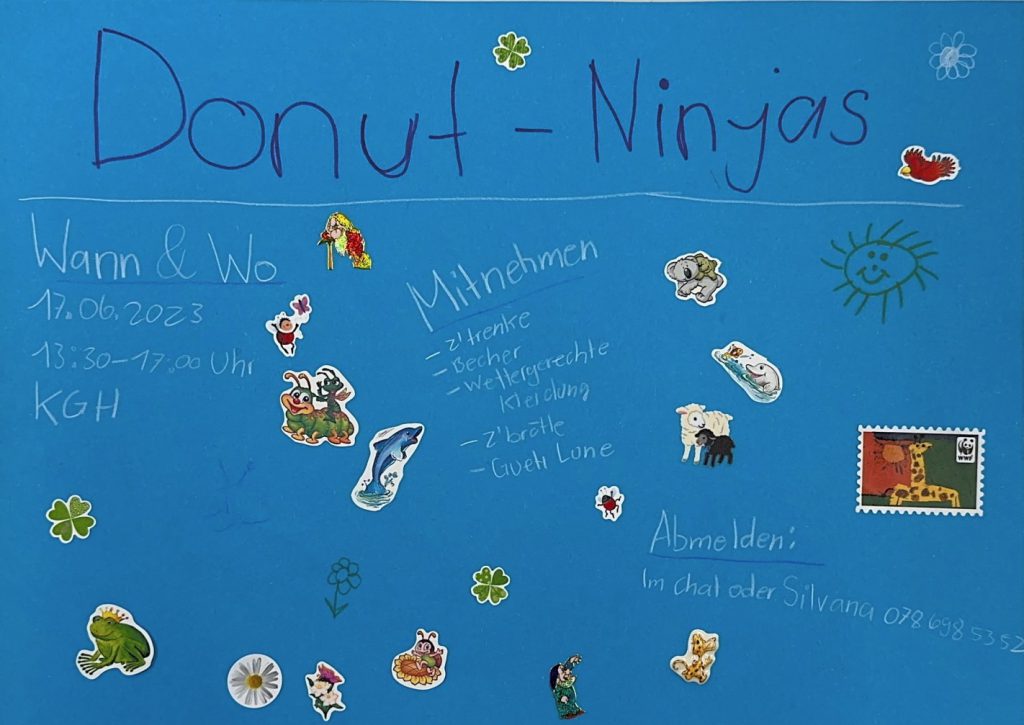 Donut - Ninjas
Wann & Wo
17.06.2023
13:30-17:00 Uhr
KGH
Mitnehmen
- z'trenke
- Becher
- Wettergerechte
Kleidung
- z'brötle
- Gueti Lune
WWF
Abmelden:
Im Chat oder Silvana 078 698 53 52